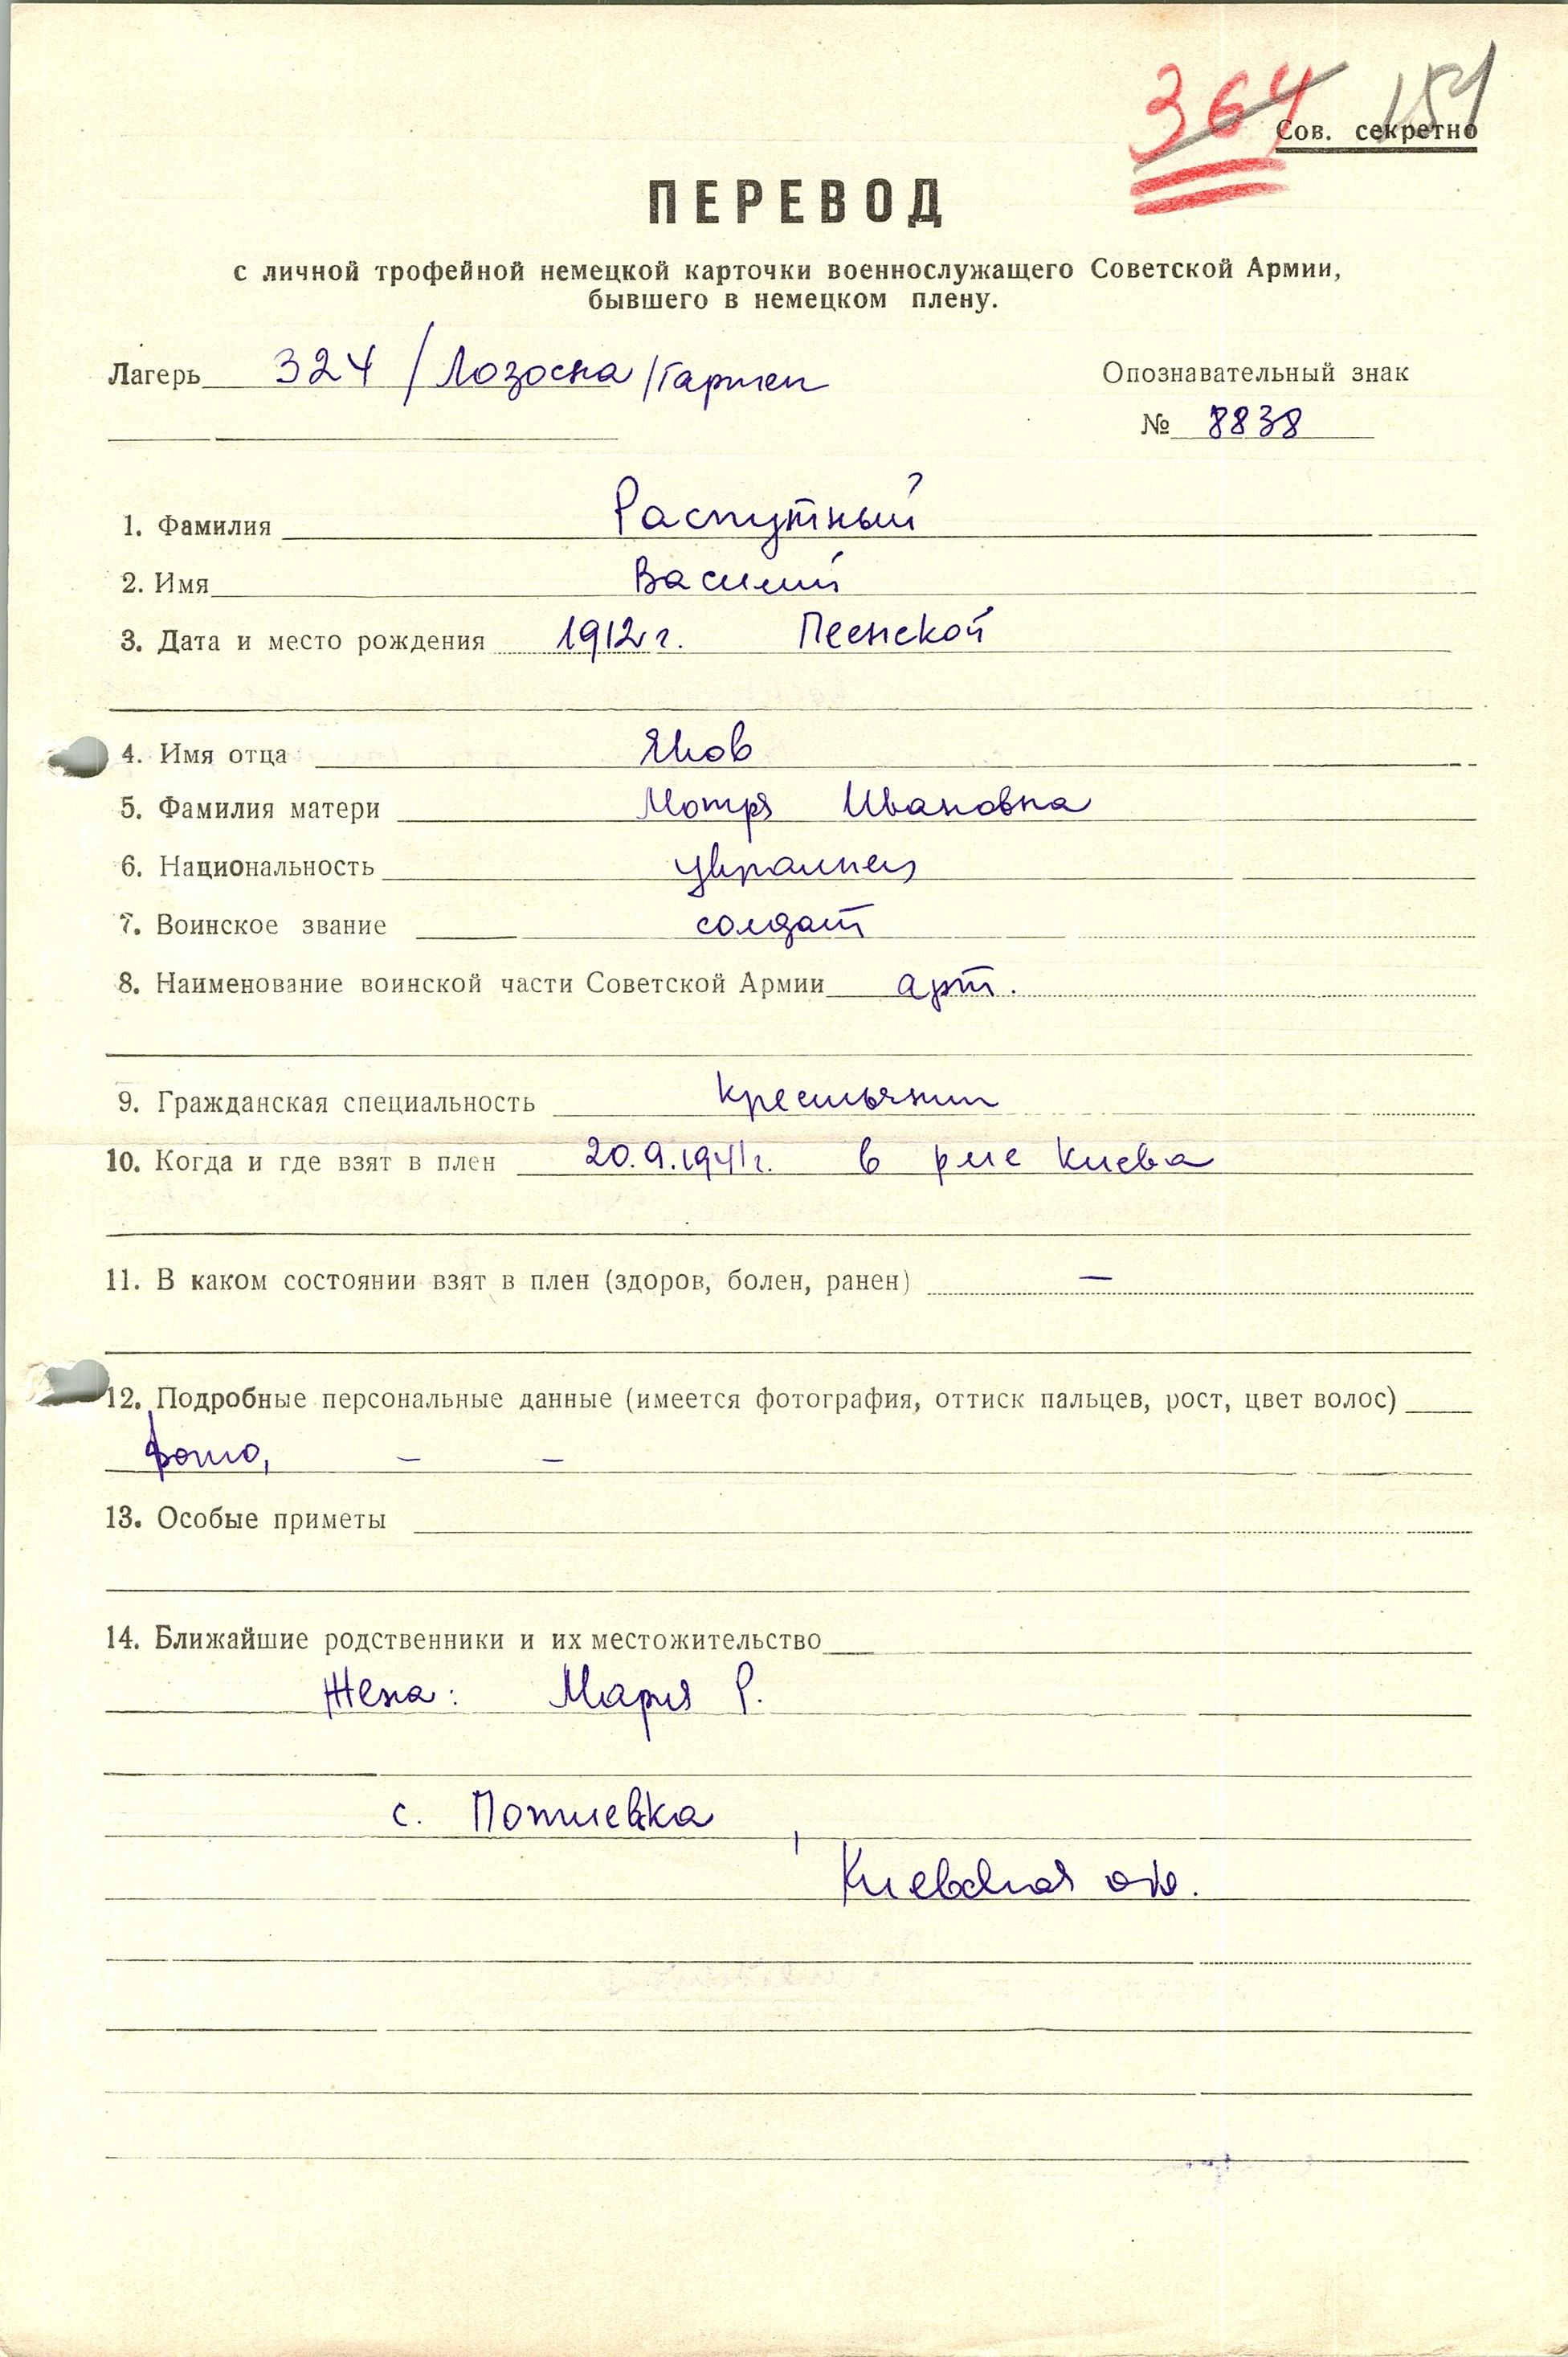 364 151
Сов. секретно
ПЕРЕВОД
с личной трофейной немецкой карточки военнослужащего Советской Армии,
бывшего в немецком плену.
Лагерь 324 /Лозосна/Гартен
Опознавательный знак
№ 8838
1. Фамилия Распутный
2. Имя Василий
3. Дата и место рождения 1912 г. Песнской
4. Имя отца Яков
5. Фамилия матери Мотря Ивановна
6. Национальность украинец
7. Воинское звание солдат
8. Наименование воинской части Советской Армии арт.
9. Гражданская специальность крестьянин
10. Когда и где взят в плен 20.9.1941 г. в р-не Киева
11. В каком состоянии взят в плен (здоров, болен, ранен) —
12. Подробные персональные данные (имеется фотография, оттиск пальцев, рост, цвет волос)
фото, – –
13. Особые приметы
14. Ближайшие родственники и их местожительство
Жена: Мария Р.
с. Потиевка,
Киевская об.